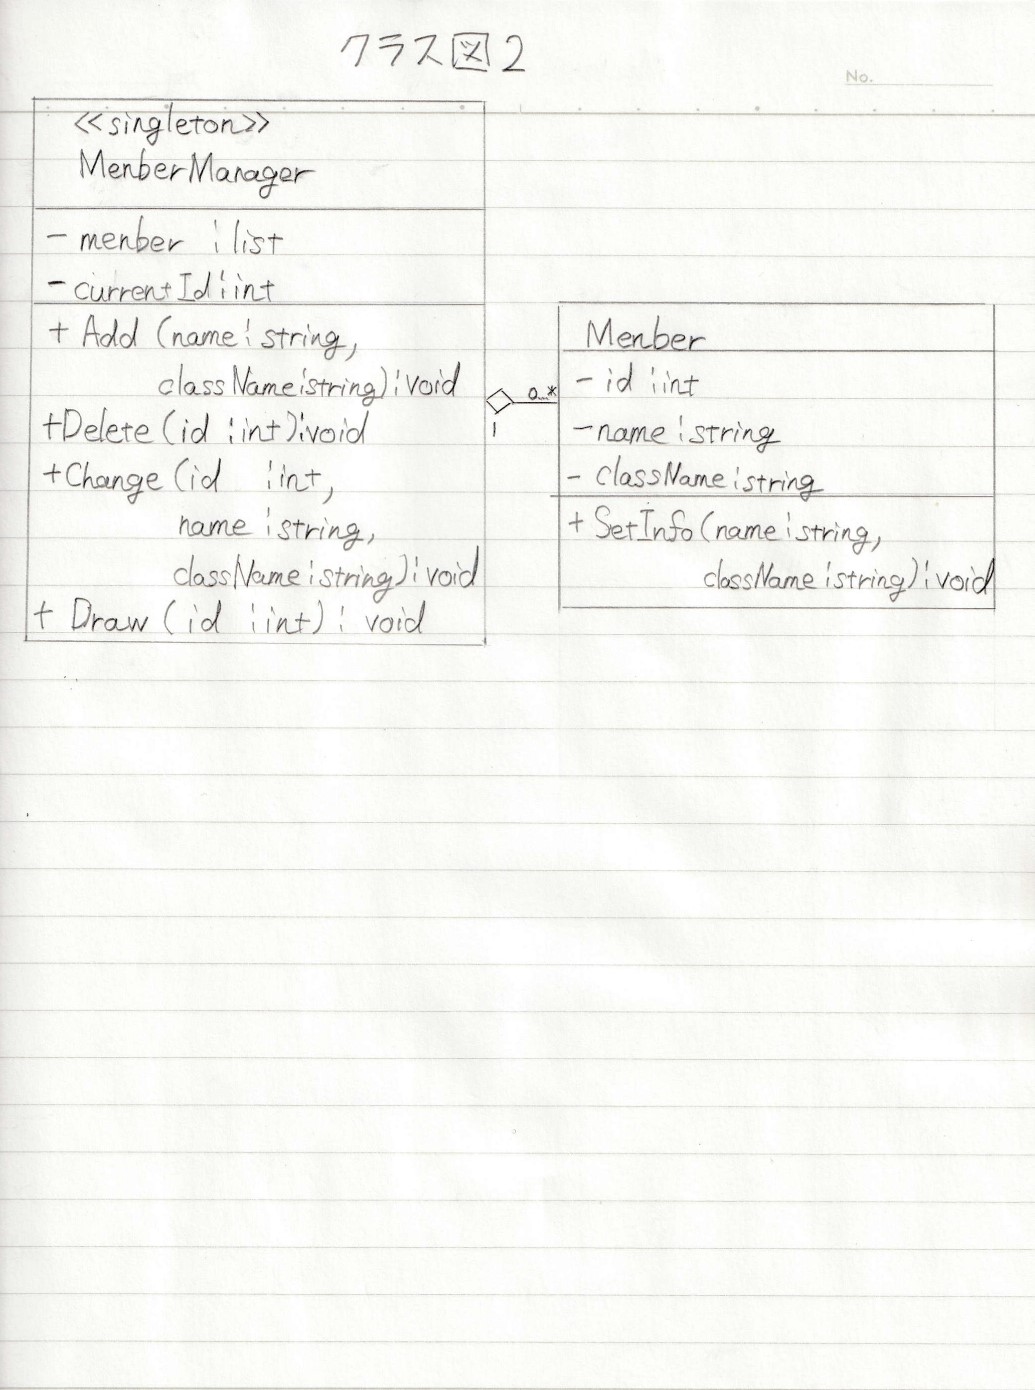 クラス図2
No.
<<singleton>>
MenberManager
- menber : list
- currentId : int
+ Add (name : string,
className : string) : void
+Delete (id : int) : void
+Change (id : int,
name : string,
className : string) : void
+ Draw (id : int) : void
0..*
1
Menber
- id : int
- name : string
- className : string
+ SetInfo (name : string,
className : string) : void